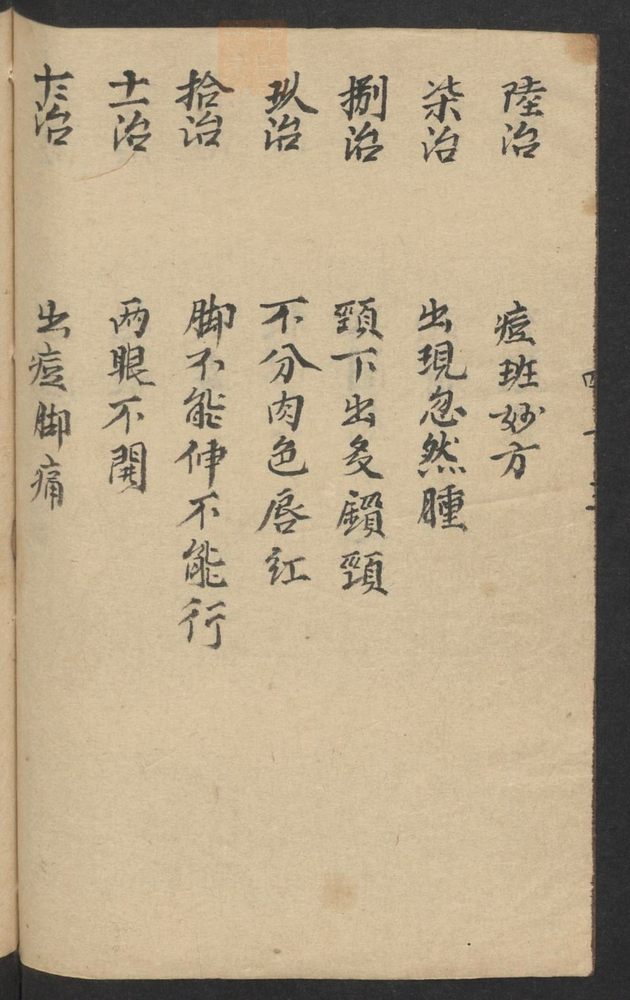 陸治 痘班妙方
柒治 出現忽然腫
捌治 頸下出多鎖頸
玖治 不分肉色唇紅
拾治 脚不能伸不能行
十一治 两眼不開
十二治 出痘脚痛